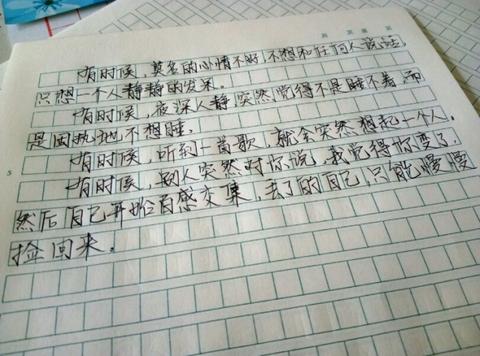 有时候，莫名的心情不好，不想和任何人说话，
只想一个人静静的发呆。
有时候，夜深人静突然觉得不是睡不着，而
是固执地不想睡。
有时候，听到一首歌，就会突然想起一个人。
有时候，别人突然对你说，我觉得你变了，
然后自己开始百感交集，丢了的自己，只能慢慢
捡回来。